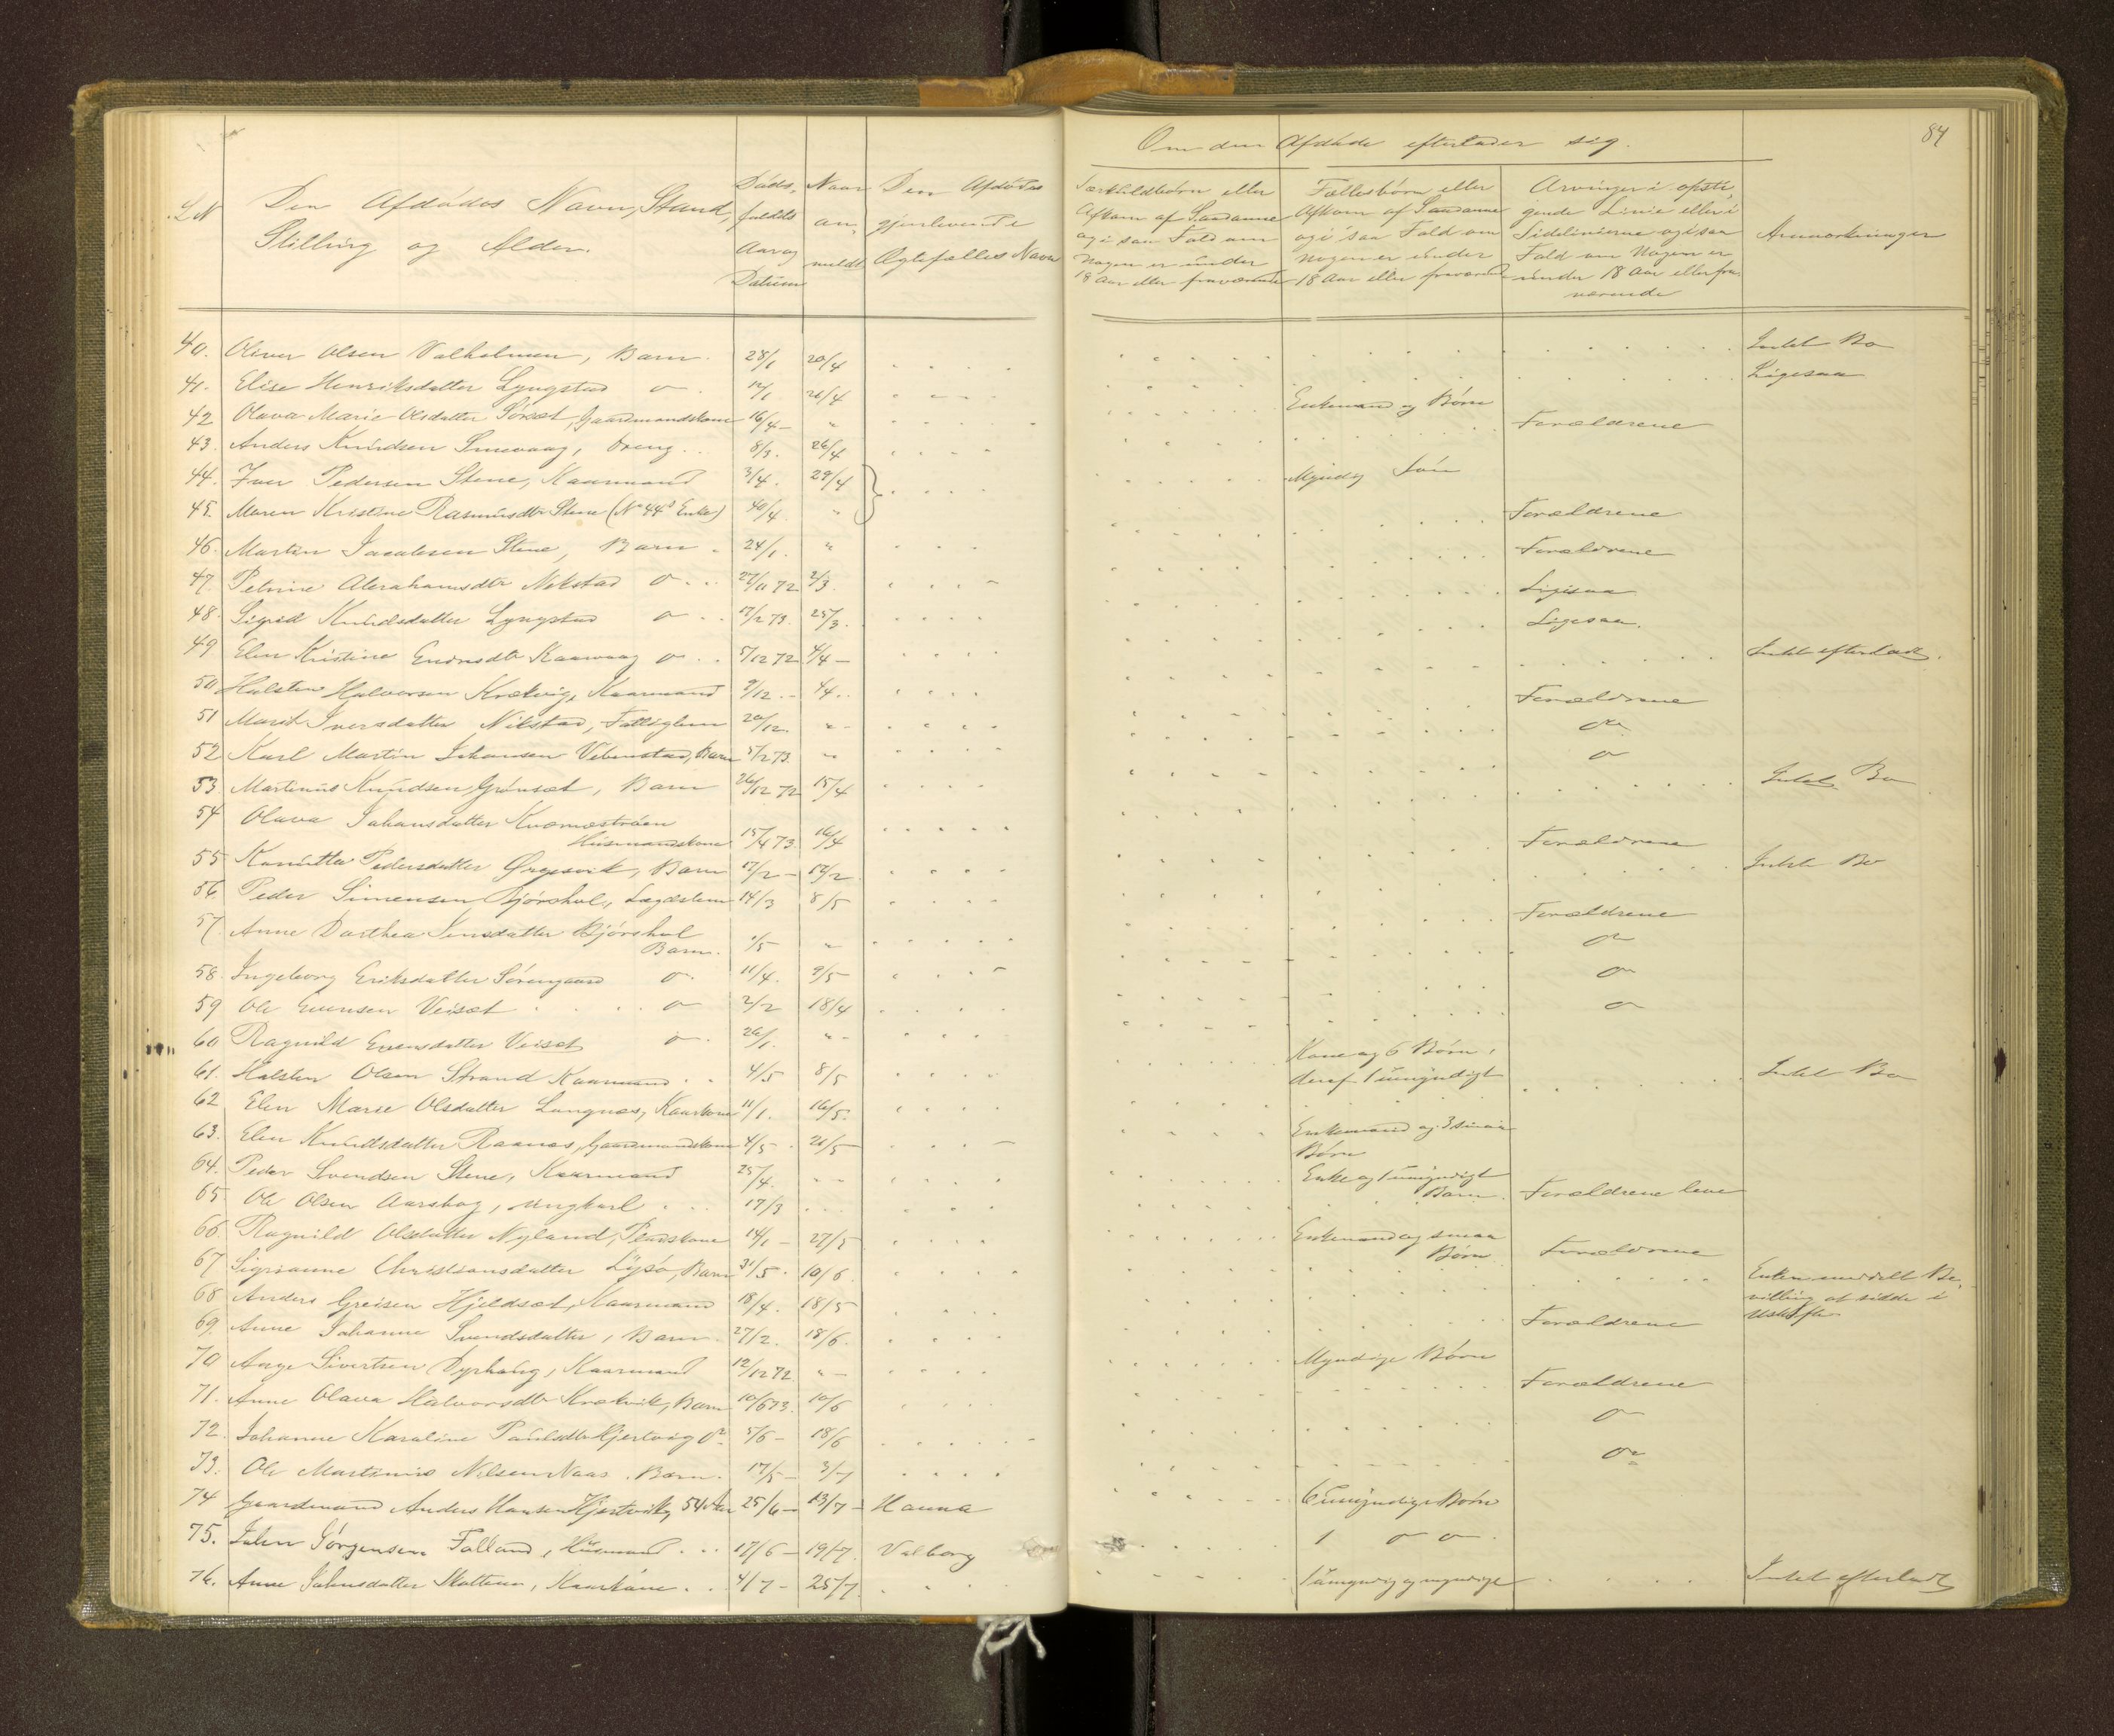 84
Om den Afdøde efterlader sig.
LN
Den Afdødes Navn, Stand,
Stilling og Alder.
Døds-
faldets
Aar og
Datum
Naar
an-
meldt
Den Afdødes
gjenlevende
Ægtefælles Navn
Særkuldbørn eller
Afkom af Saadanne
og i saa Fald om
Nogen er under
18 Aar eller fraværende
Fællesbørn eller
Afkom af Saadanne
og i saa Fald om
Nogen er under
18 Aar eller fraværende
Arvinger i opsti-
gende Linie eller i
Sidelinierne og i saa
Fald om Nogen er
under 18 Aar eller fra-
værende
Anmærkninger
40. Oliver Olsen Valholmen, Barn. 28/1 20/4 Intet Bo
41. Elise Henriksdatter Lyngstad o 12/1 26/4 Ligesaa
42 Olava Marie Olsdatter Sørset, Gaardmandskone 16/4 - " Enkemand og Børn
43. Anders Knudsen Smevaag, Dreng .. 8/3. 26/4 Forældrene
44. Iver Pedersen Stene, Kaarmand 3/4. 29/4 Myndig Søn
45. Maren Kristine Rasmusdtr Stene (No 44s Enke) 10/4. "
46. Martin Jacobsen Stene, Barn . 24/1. " Forældrene
47. Petrine Abrahamsdtr Nekstad o .. 27/11 72 2/3. Forældrene
48. Sigrid Knudsdatter Lyngstad o .. 17/2 73. 25/3. Ligesaa
49 Elen Kristine Endresdtr Kaarvaag o .. 5/12 72 4/4 - Ligesaa.
50 Halsten Halvorsen Krekvig, Kaarmand 9/12. - 4/4.. Intet efterladt.
51 Marit Iversdatter Nikstad, Fattiglem 20/12. " - Forældrene
52 Karl Martin Johansen Vebenstad, Barn 5/2 73. " o
53 Martinus Knudsen Grønset, Barn 26/12 72 15/4 o
54 Olava Johansdatter Kvernestrøen
Husmandskone 15/4 73. 16/4 Intet Bo
55 Pedersdatter Ørgesvik, Barn 17/2 - 17/2 Forældrene
56. Peder Simensen Bjørshol, Lægdslem 14/3 8/5 Intet Bo
57. Anne Dorthea Jensdatter Bjørshol
Barn. 1/5 " Forældrene
58. Ingeborg Eriksdatter Sørengaard o. 11/4. 9/5 o
59 Ole Evensen Veiset o 2/2 18/4 o
60 Ragnild Evensdatter Veiset o. 26/1. " - o
61. Halsten Olsen Strand Kaarmand .. 4/5 8/5 Kone og 6 Børn,
deraf 1 umyndigt
62 Elen Marie Olsdatter Langnæs, Kaarkone 11/1. 16/5. Intet Bo
63. Elen Knudsdatter Ramnes, Gaardmandskone 4/5 . 21/5 Enkemand og 3 smaa
Børn
64. Peder Svendsen Stene, Kaarmand 25/4. " - Enke og 1 umyndigt
Barn.
65. Ole Olsen Aarsbog, Ungkarl ... 17/3 ... Forældrene leve
66. Ragnild Olsdatter Nyland, Pladskone 14/1 - 27/5 Enkemand og smaa
Børn
67 Sigrianne Christiansdatter Lysø, Barn 31/5. 10/6. Forældrene
68 Anders Greisen Hjeldset, Kaarmand 18/4. 18/5 Enken meddelt Be-
villing at sidde i
Uskifte
69. Anne Johanne Svendsdatter, Barn. 27/2. 18/6. Forældrene
70 Aage Sivertsen Dyrhaug, Kaarmand 12/12 72 " - Myndige Børn
71. Anne Olava Halvorsdtr Krekvik, Barn 10/6 73. 10/6 Forældrene
72. Johanne Karoline Paulsdtr Hjertvig Do. 5/6 - 18/6 o
73. Ole Martinus Nilsen Naas. Barn. 17/5 - 3/7 Do
74 Gaardmand Anders Hansen Hjertvik, 54 Aar 25/6 - 13/7 - Hanna 6 umyndige Børn
75. John Jørgensen Folland, Husmand ... 17/6 - 19/7. Valborg 1 o o.
76. Anne Johnsdatter Skottemo, Kaarkone ... 4/7 - 25/7. 1 umyndig og myndige Intet efterladt